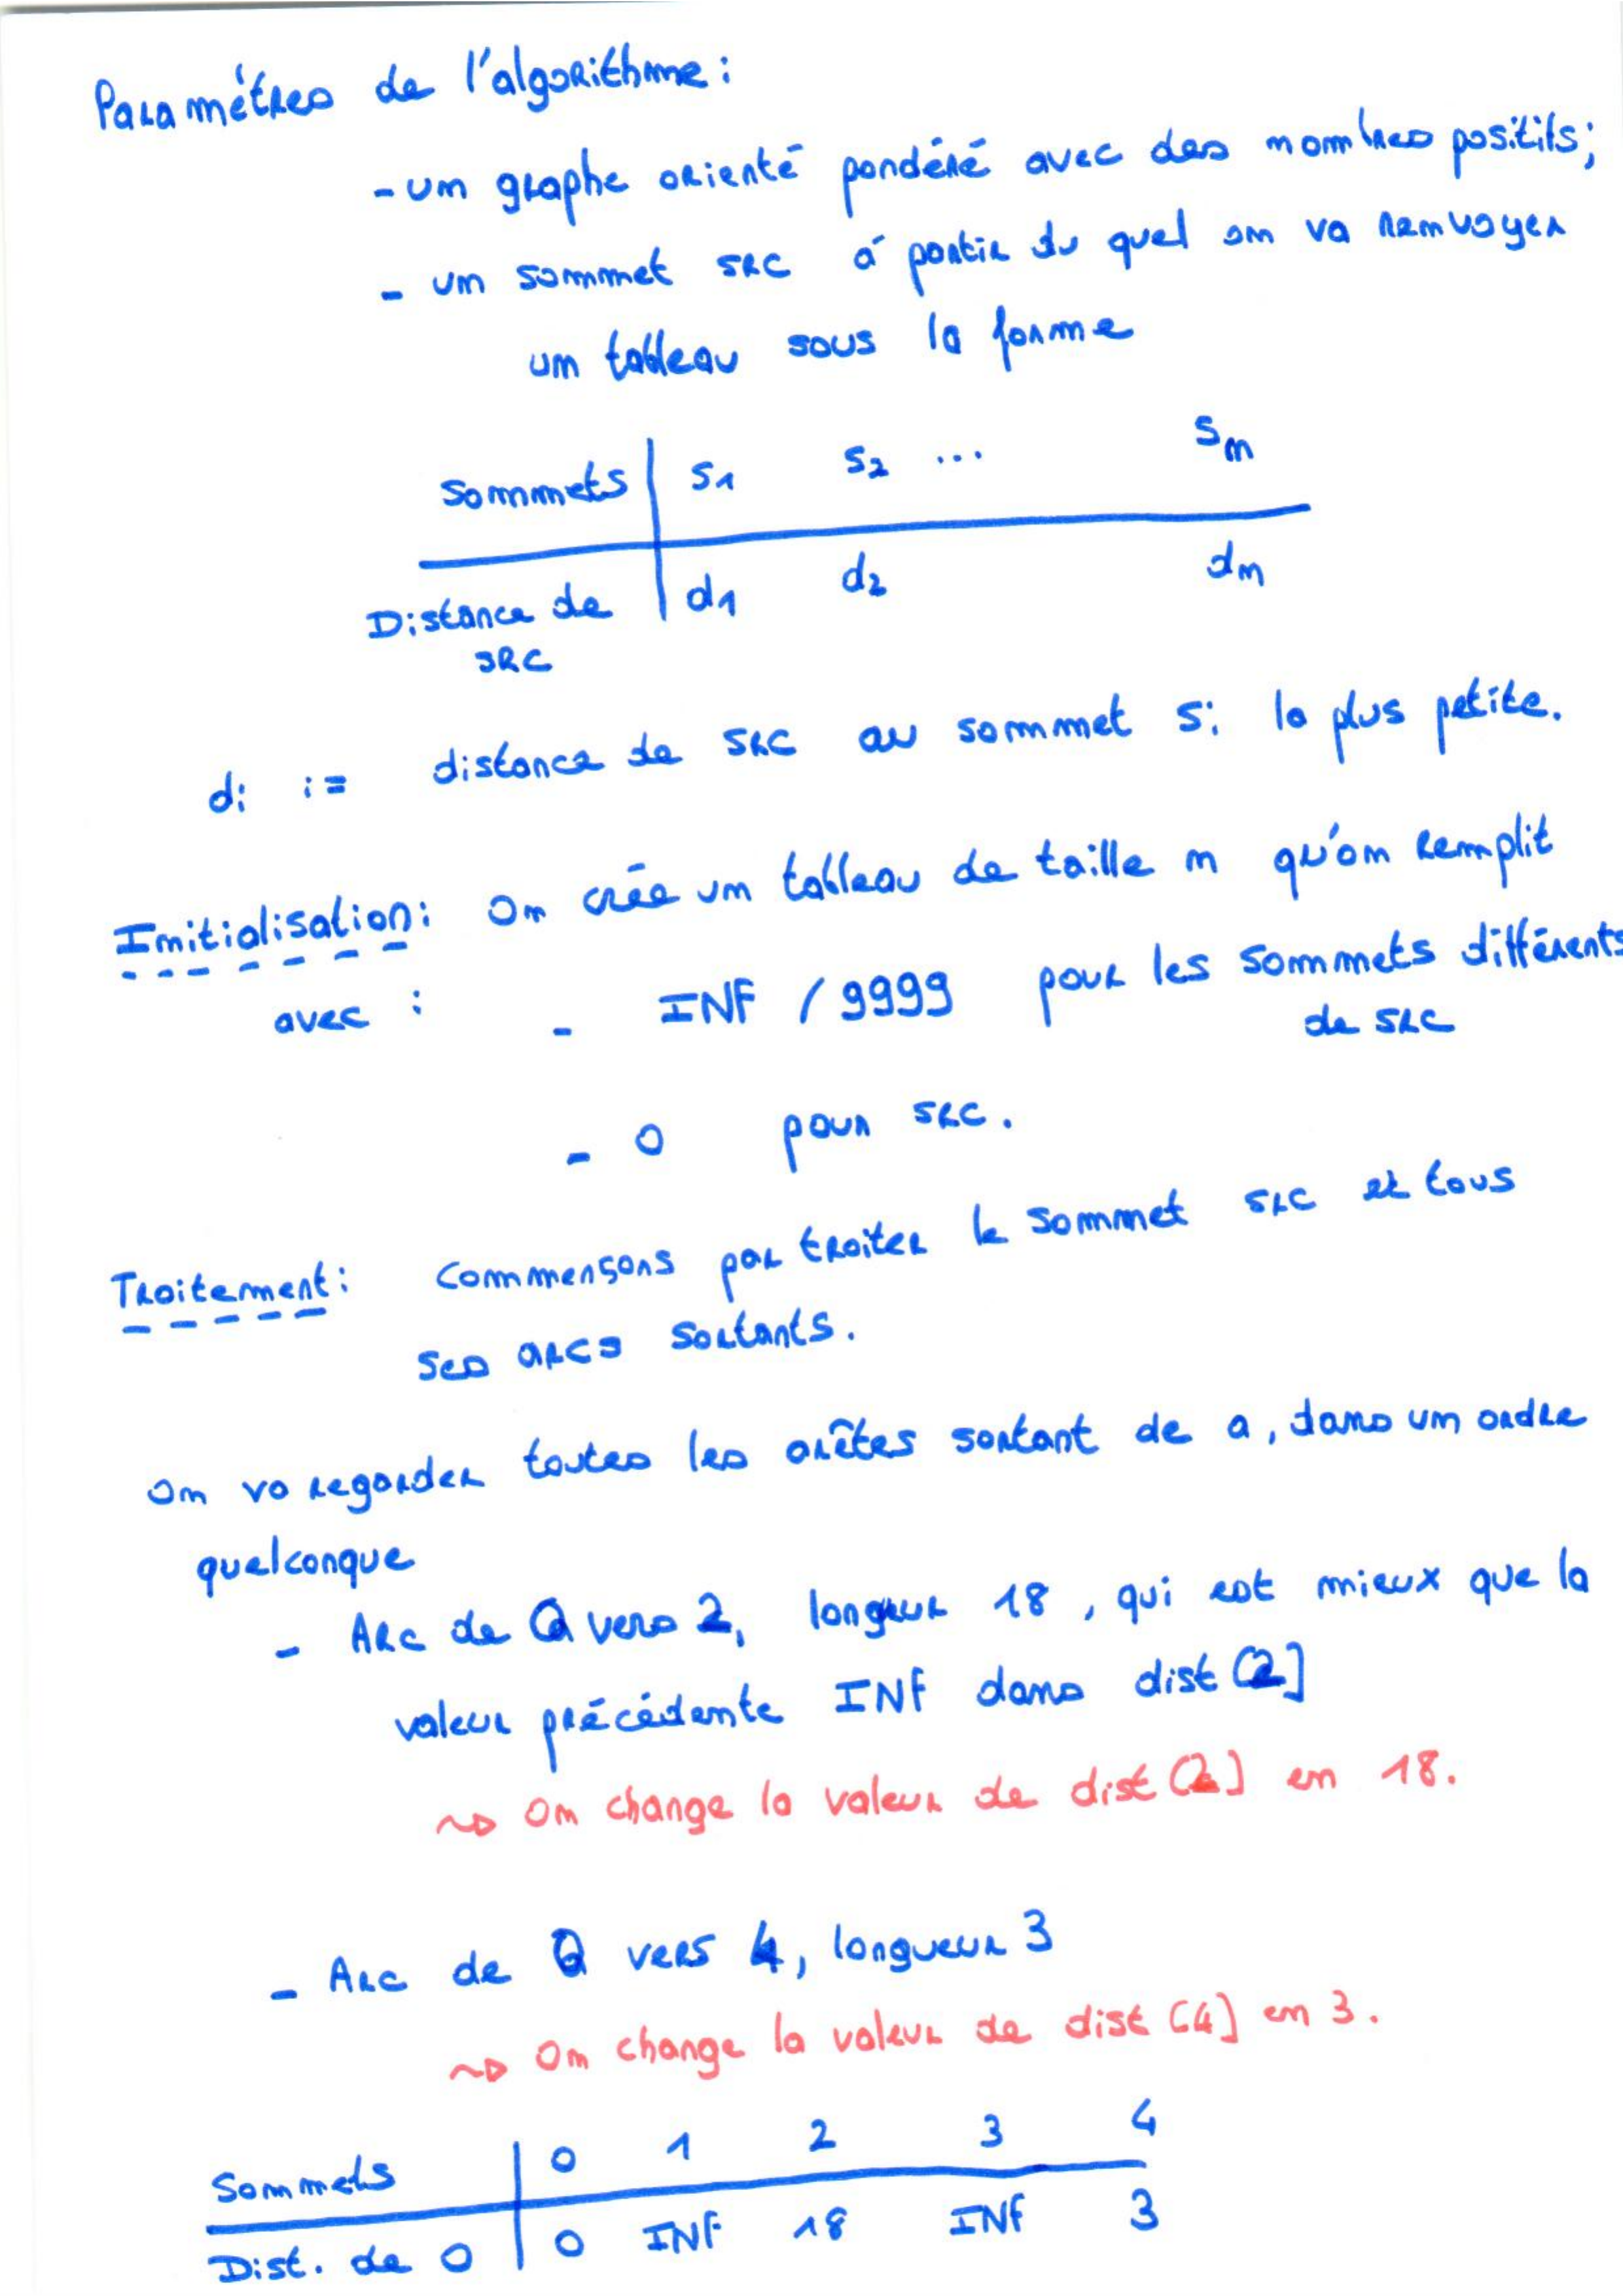 Paramétres de l'algorithme:
- un graphe orienté pondéré avec des nombres positifs;
- un sommet src á partir du quel on va renvoyer
un tableau sous la forme
Sommets | S1 S2 ... Sn
Distance de | d1 d2 dn
src
di := distance de src au sommet Si la plus petite.
Initialisation: On crée un tableau de taille n qu'on remplit
avec : - INF / 9999 pour les sommets différents
de src
- 0 pour src.
Traitement: Commensons par traiter le sommet src et tous
ses arcs sortants.
On va regarder toutes les arêtes sortant de a, dans un ordre
quelconque
- Arc de 0 vers 2, longueur 18, qui est mieux que la
valeur précédente INF dans dist[2]
~> On change la valeur de dist[2] en 18.
- Arc de 0 vers 4, longueur 3
~> On change la valeur de dist[4] en 3.
Sommets | 0 1 2 3 4
Dist. de 0 | 0 INF 18 INF 3